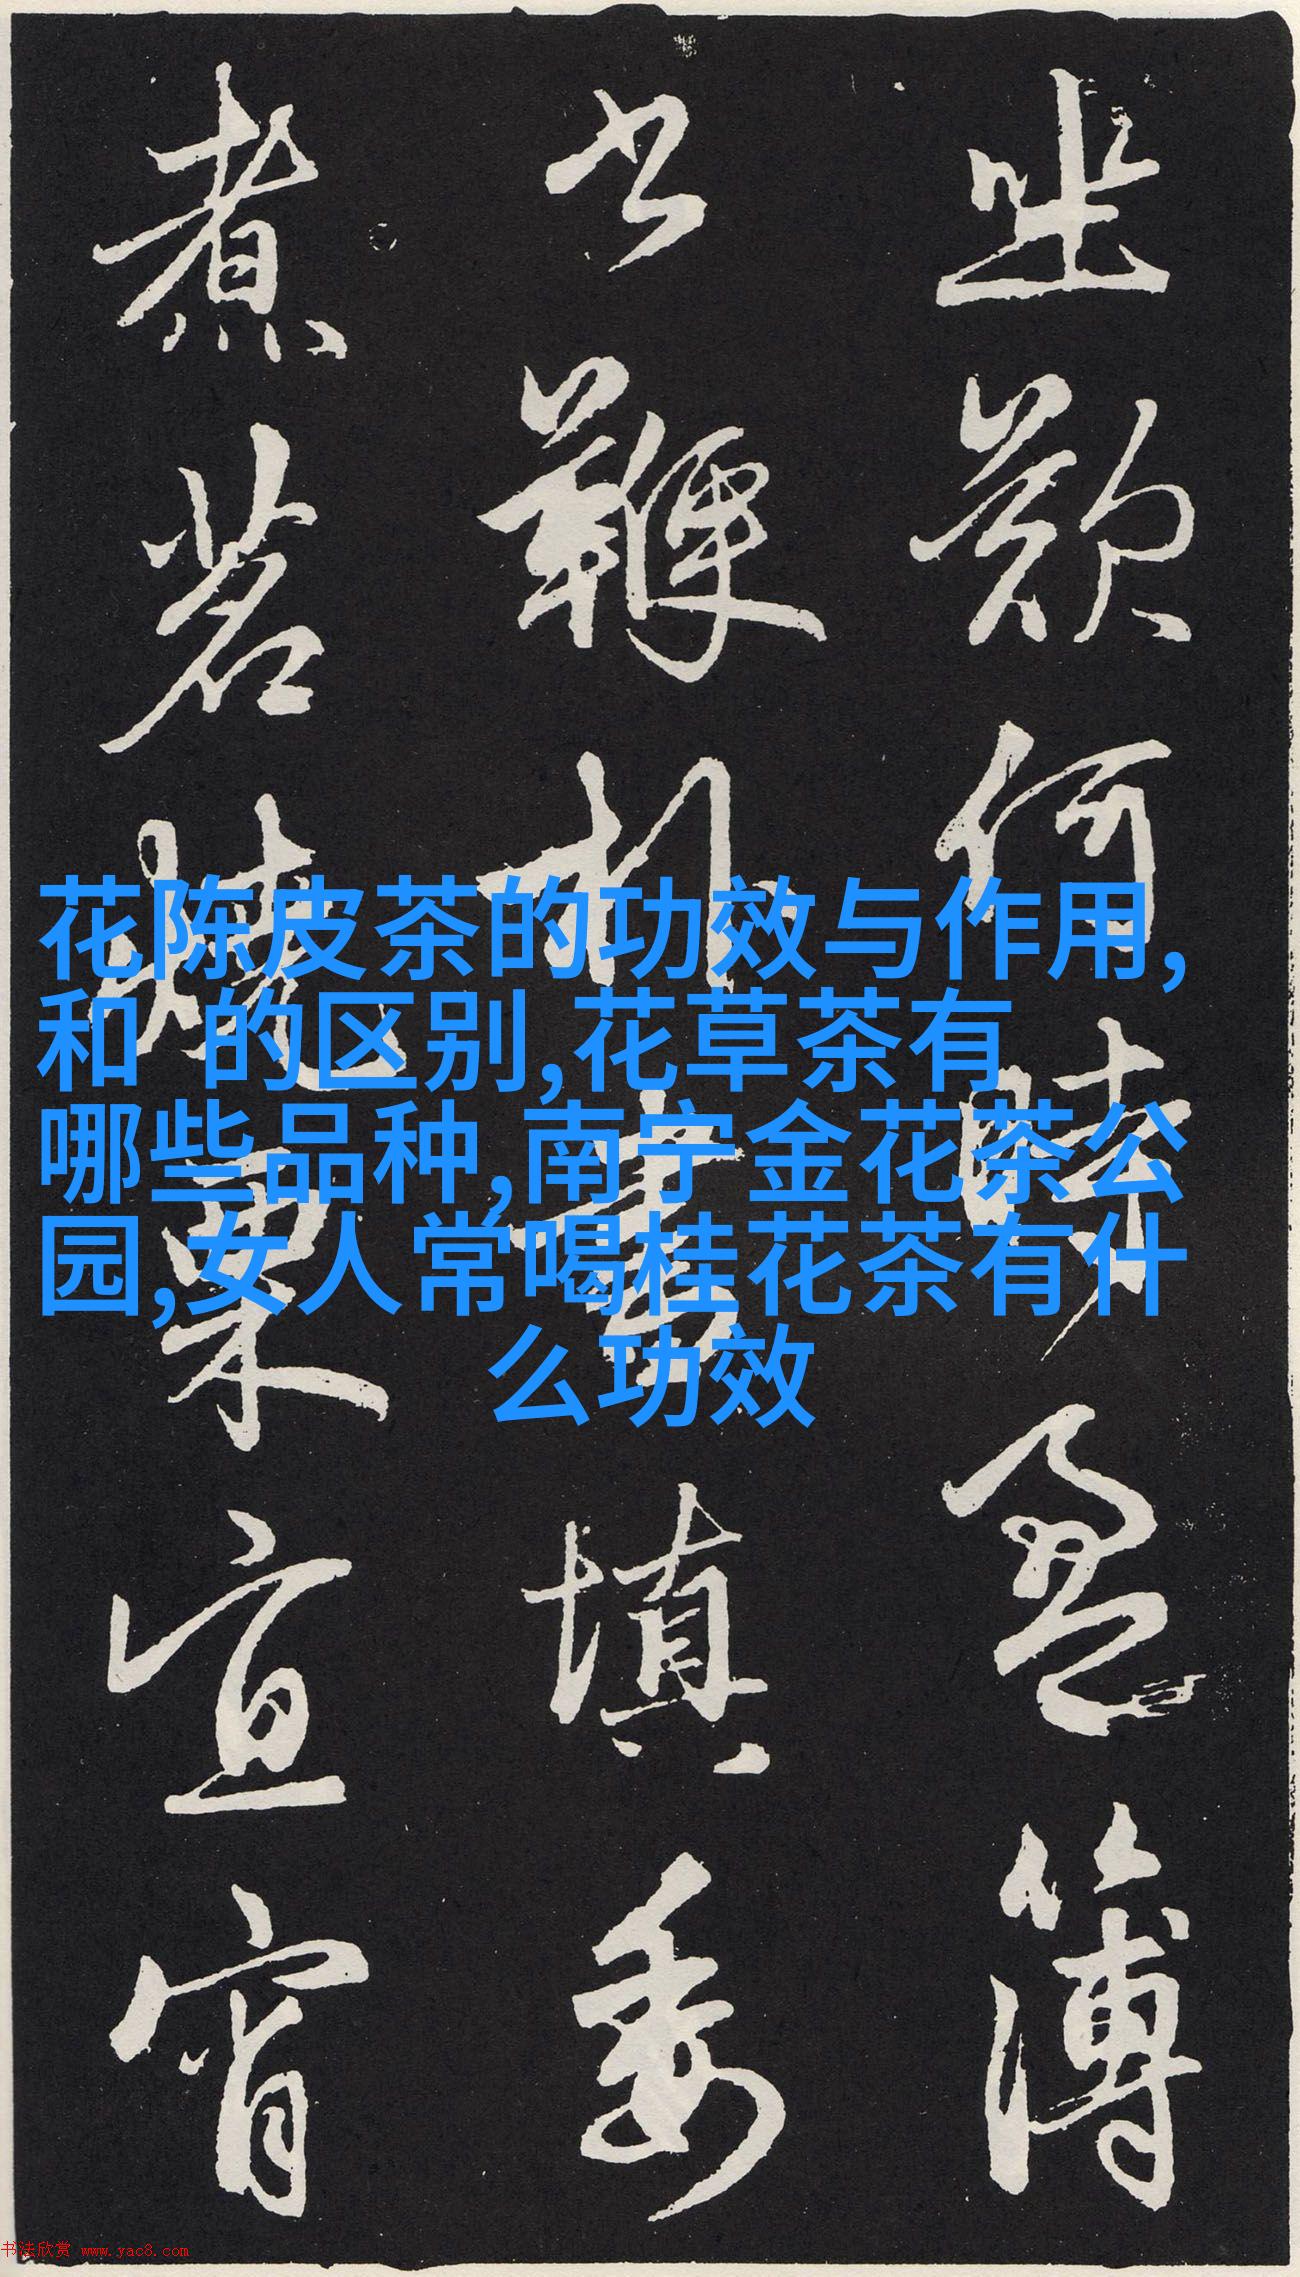 何時盈簿
书鞭扑晝填委
煮茗燒栗宜宵
花陈皮茶的功效与作用,
和 的区别,花草茶有
哪些品种,南宁金花茶公
园,女人常喝桂花茶有什
么功效
书法欣赏 www.yac8.com